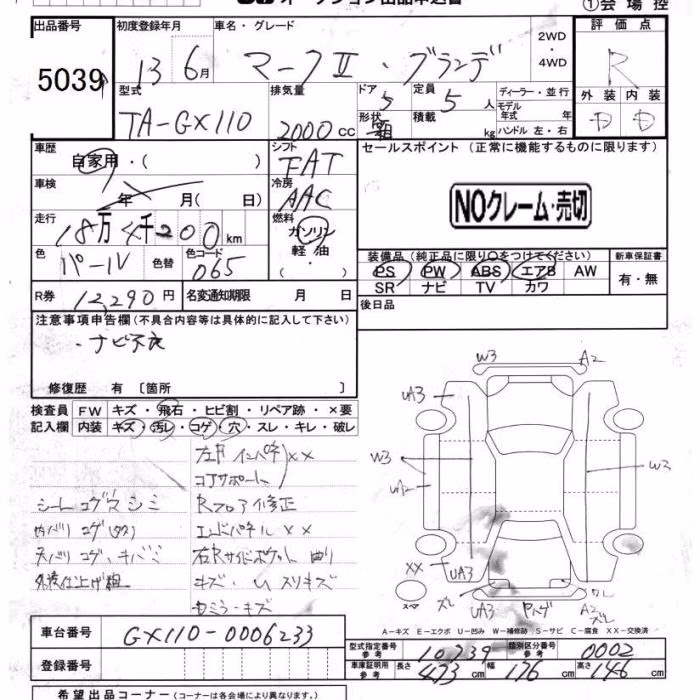 オークション出品申込書 ①会場控
出品番号 初度登録年月 車名・グレード 2WD 評価点
5039 13 6月 マークⅡ・グランデ ・4WD R
型式 排気量 ドア 定員 ディーラー・並行 外装 内装
TA-GX110 2000cc 5 5人 モデル年式 年 D D
形状 積載 kg ハンドル 左・右
車歴 シフト セールスポイント (正常に機能するものに限ります)
自家用・( ) FAT
車検 冷房
年 月(日) AAC NOクレーム・売切
走行 燃料
18万4千200km ガソリン
色 色替 色コード 軽油 装備品(純正品に限り○をつけてください) 新車保証書
パール 065 ・ PS PW ABS エアB AW 有・無
SR ナビ TV カワ
R券 12,290円 名変通知期限 月 日 後日品
注意事項申告欄(不具合内容等は具体的に記入して下さい)
・ナビ不良
修復歴 有 〔箇所 〕
検査員 FW キズ・飛石・ヒビ割・リペア跡・×要
記入欄 内装 キズ・汚レ・コゲ・穴・スレ・キレ・破レ
左右インパネ XX
コアサポート
シートコゲ穴シミ Rフロア修正
内バリコゲ エンドパネル XX
天バリコゲ、キバミ 右Rサイドポケット曲り
外装仕上げ粗 キズ・U スリキズ
ミラーキズ
W3 A2
UA3
W3 W3
UA2
XX UA3
ズレ UA3 A2 ズレ
A-キズ E-エクボ U-凹み W-補修跡 S-サビ C-腐食 XX-交換済
車台番号 GX110-0006233
型式指定番号 参考 10739 類別区分番号 参考 0002
登録番号 車庫証明用 参考 長さ 473cm 幅 176cm 高さ 146cm
希望出品コーナー (コーナーは各会場により異なります。)